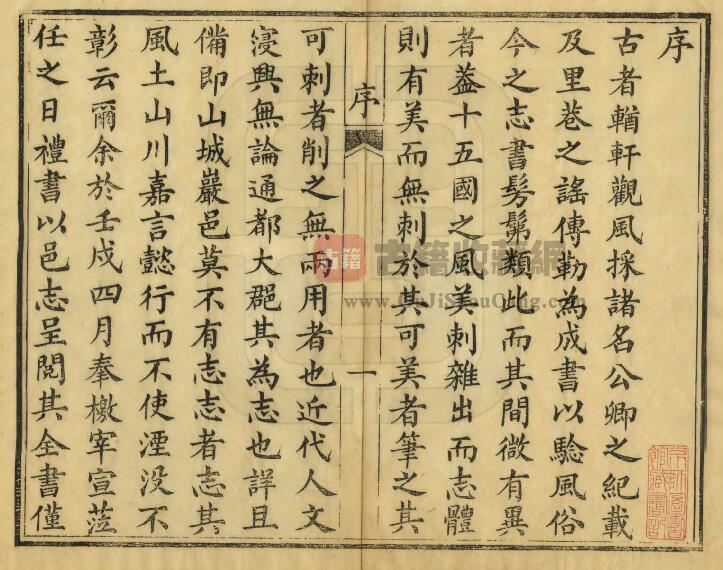 序
古者輶軒觀風採諸名公卿之紀載
及里巷之謠傳勒為成書以騐風俗
今之志書髣髴類此而其間微有異
者葢十五國之風美刺雜出而志體
則有美而無刺於其可美者筆之其
序
一
可刺者削之無兩用者也近代人文
寖興無論通都大郡其為志也詳且
備即山城巖邑莫不有志志者志其
風土山川嘉言懿行而不使湮没不
彰云爾余於壬戌四月奉檄宰宣蒞
任之日禮書以邑志呈閱其全書僅
古籍
古籍收藏網
www.GuJiShouCang.com